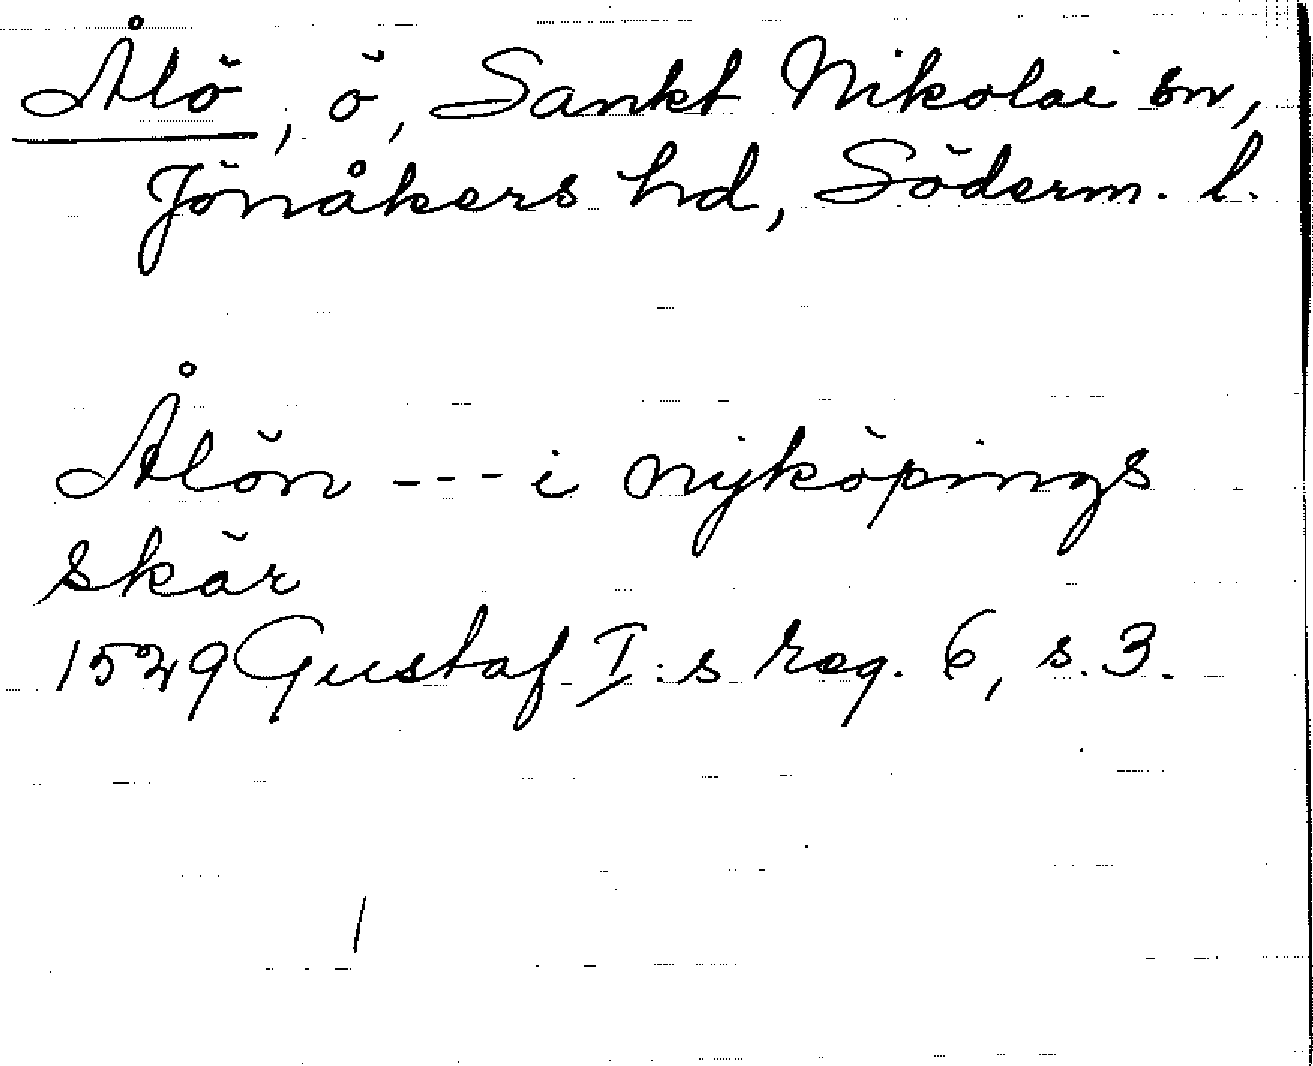 Ålö, ö, Sankt Nikolai sn,
Jönåkers hd, Söderm. l.
Ålön --- i nyköpings
skär
1529 Gustaf I:s reg. 6, s. 3.